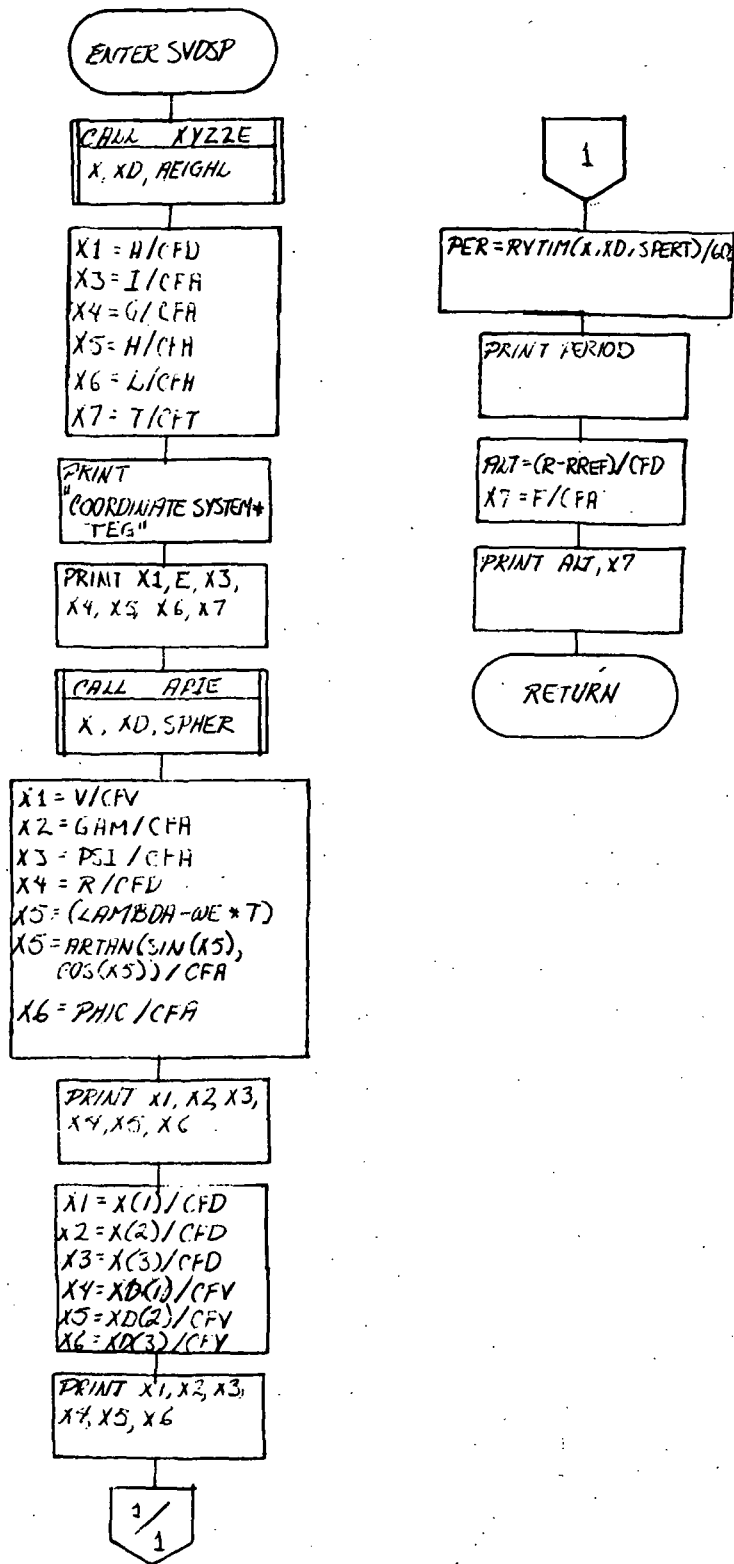 ENTER SVDSP
CALL XYZZE
X, XD, AEIGHL
X1 = A/CFD
X3 = I/CFA
X4 = G/CFA
X5 = H/CFA
X6 = L/CFA
X7 = T/CFT
PRINT
"COORDINATE SYSTEM*
TEG"
PRINT X1, E, X3,
X4, X5, X6, X7
CALL APIE
X, XD, SPHER
X1 = V/CFV
X2 = GAM/CFA
X3 = PSI/CFA
X4 = R/CFD
X5 = (LAMBDA-WE * T)
X5 = ARTAN(SIN(X5),
COS(X5))/CFA
X6 = PHIC/CFA
PRINT X1, X2, X3,
X4, X5, X6
X1 = X(1)/CFD
X2 = X(2)/CFD
X3 = X(3)/CFD
X4 = XD(1)/CFV
X5 = XD(2)/CFV
X6 = XD(3)/CFV
PRINT X1, X2, X3,
X4, X5, X6
1/1
1
PER = RVTIM(X, XD, SPERT)/60
PRINT PERIOD
ALT = (R-RREF)/CFD
X7 = F/CFA
PRINT ALT, X7
RETURN